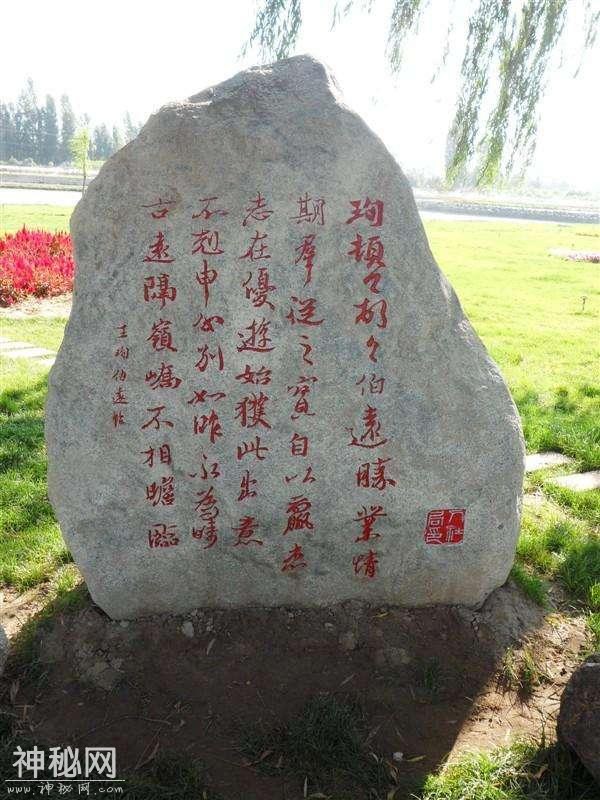 珣頓首頓首伯遠勝業情
期羣從之寶自以羸患
志在優遊始獲此出意
不剋申分別如昨永為疇
古遠隔嶺嶠不相瞻臨
王珣伯遠帖
神秘网
www.神秘网.com